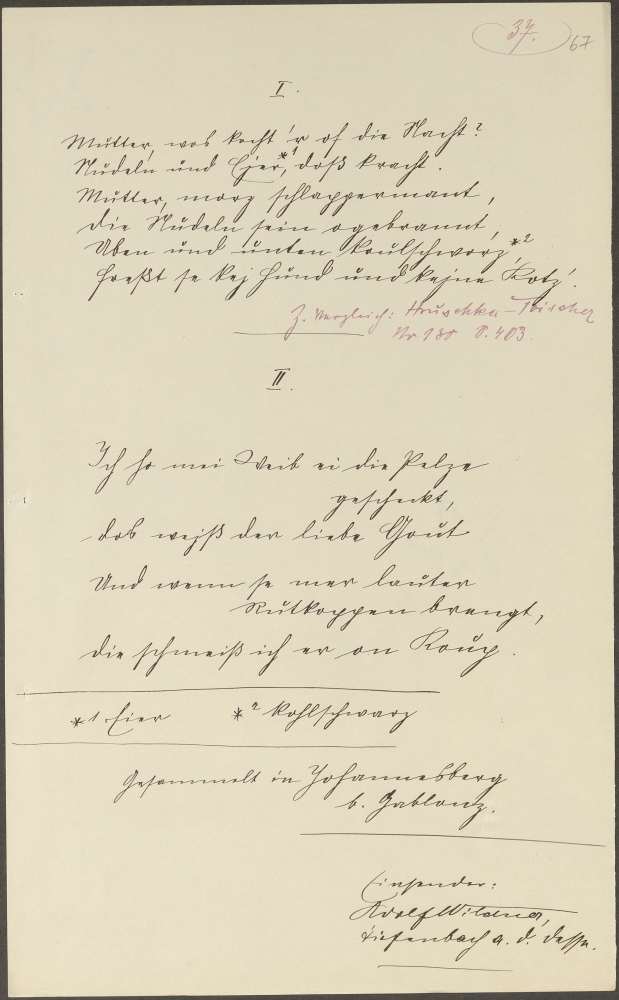 37.
67
I.
Mutter, wos kocht 'r of die Nacht?
Nudeln und Ejer,*1 doß kracht.
Mutter, morz schlappermant,
die Nudeln sein ogebrannt,
Uben und unten koulschworz*2,
freßt se kej Hund und kejne Kotz'.
Z. Vergleich: Hruschka-Toischer
Nr 180 S. 403.
II.
Ich ho mei Weib ei die Pelze
gescheckt,
dos wejß der liebe Gout
Und wenn se mer lauter
Rutkoppen brengt,
die schmeiß ich er on Koup.
*1 Eier *2 Kohlschwarz
Gesammelt in Johannesberg
b. Gablonz.
Einsender:
Adolf Wildner,
Tiefenbach a. d. Desse.